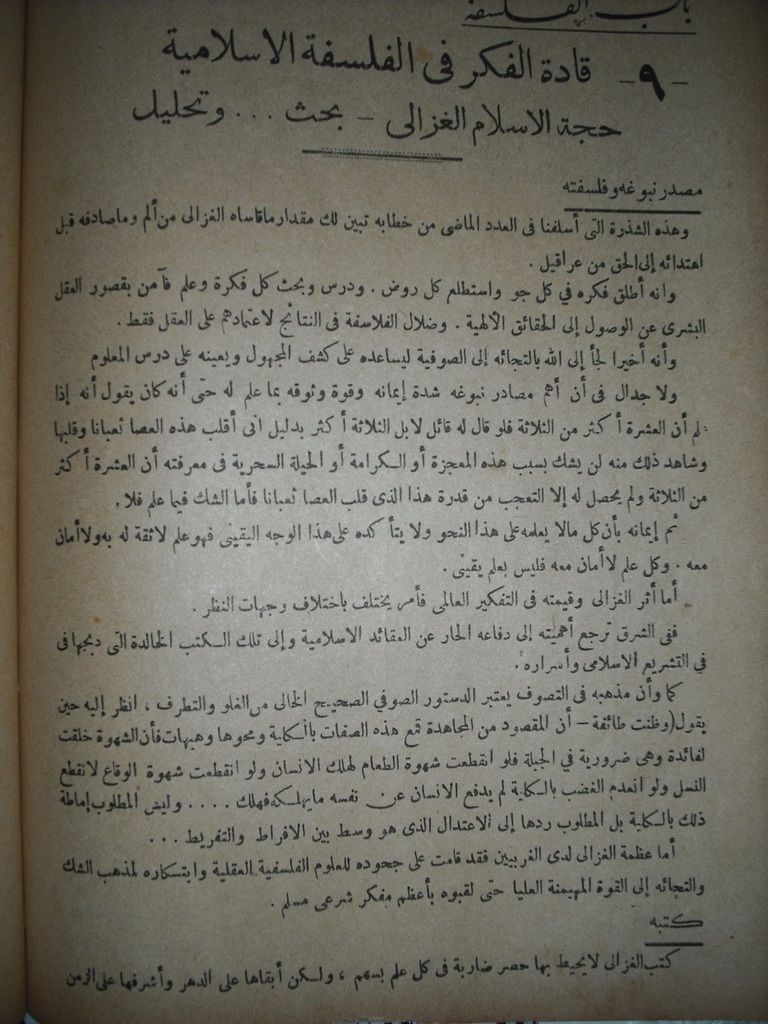 باب الفلسفة
- ٩ - قادة الفكر فى الفلسفة الاسلامية
حجة الاسلام الغزالى - بحث ... وتحليل
مصدر نبوغه وفلسفته
وهذه الشذرة التى أسلفنا فى العدد الماضى من خطابه تبين لك مقدار ماقاساه الغزالى من ألم وماصادفه قبل
اهتدائه إلى الحق من عراقيل .
وانه أطلق فكره في كل جو واستطلع كل روض . ودرس وبحث كل فكرة وعلم فآمن بقصور العقل
البشرى عن الوصول إلى الحقائق الآلهية . وضلال الفلاسفة فى النتائج لاعتمادهم على العقل فقط .
وأنه أخيرا لجأ إلى الله بالتجائه إلى الصوفية ليساعده على كشف المجهول ويعينه على درس المعلوم
ولا جدال فى أن أهم مصادر نبوغه شدة إيمانه وقوة وثوقه بما علم له حتى أنه كان يقول أنه إذا
علم أن العشرة أكثر من الثلاثة فلو قال له قائل لابل الثلاثة أكثر بدليل انى أقلب هذه العصا ثعبانا وقلبها
وشاهد ذلك منه لن يشك بسبب هذه المعجزة أو الكرامة أو الحيلة السحرية فى معرفته أن العشرة أكثر
من الثلاثة ولم يحصل له إلا التعجب من قدرة هذا الذى قلب العصا ثعبانا فأما الشك فيما علم فلا .
ثم إيمانه بأن كل مالا يعلمه على هذا النحو ولا يتأكده على هذا الوجه اليقينى فهو علم لاثقة له به ولا أمان
معه . وكل علم لاأمان معه فليس بعلم يقينى .
أما أثر الغزالى وقيمته فى التفكير العالمى فأمر يختلف باختلاف وجهات النظر .
ففى الشرق ترجع أهميته إلى دفاعه الحار عن العقائد الاسلامية وإلى تلك الكتب الخالدة التى دبجها فى
في التشريع الاسلامى وأسراره .
كما وأن مذهبه فى التصوف يعتبر الدستور الصوفي الصحيح الخالى من الغلو والتطرف ، انظر إليه حين
يقول (وظنت طائفة - أن المقصود من المجاهدة قمع هذه الصفات بالكلية ومحوها وهيهات فأن الشهوة خلقت
لفائدة وهى ضرورية في الجبلة فلو انقطعت شهوة الطعام لهلك الانسان ولو انقطعت شهوة الوقاع لانقطع
النسل ولو انعدم الغضب بالكلية لم يدفع الانسان عن نفسه مايهلكه فهلك .... وليس المطلوب إماطة
ذلك بالكلية بل المطلوب ردها إلى الاعتدال الذى هو وسط بين الافراط والتفريط ...
أما عظمة الغزالى لدى الغربيين فقد قامت على جحوده للعلوم الفلسفية العقلية وابتكاره لمذهب الشك
والتجائه إلى القوة المهيمنة العليا حتى لقبوه بأعظم مفكر شرعى مسلم .
كتبه
كتب الغزالى لايحيط بها حصر ضاربة فى كل علم بسهم ، ولكن أبقاها على الدهر وأشرفها على الزمن